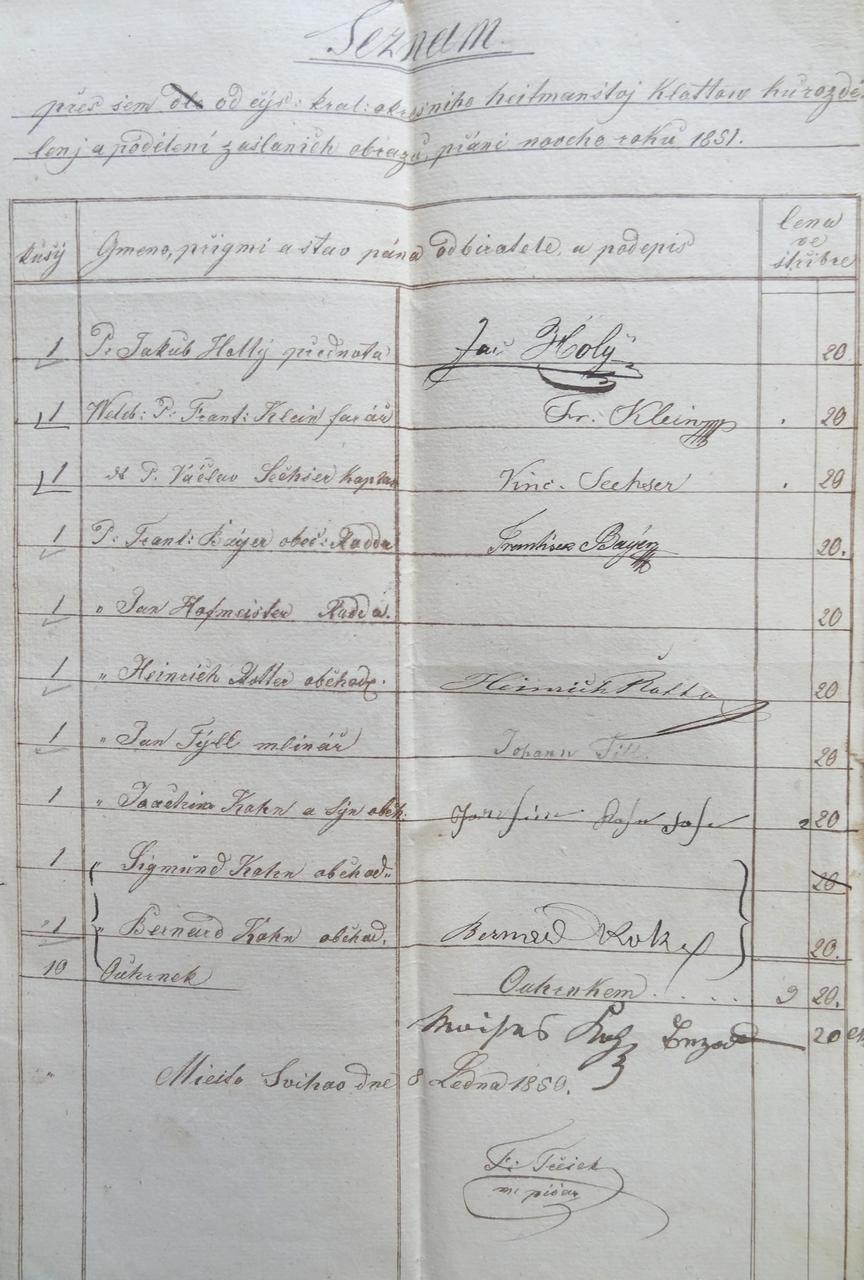 Seznam
přes sem od cýs: král: okresního heitmanstvj Klattow ku rozdě
lenj a podělení zaslaních obrazů, přáni nového roku 1851.
kusý Gmeno, přigmi a stav pána odbiratele a podepis Cena ve střibře
1 P: Jakub Hollý přednosta Jac Holý 20
1 Weleb: P: Frant: Klein farář Fr. Klein 20
1 dt P. Václav Sechser Kaplan Vinc. Sechser 20
1 P: Frant: Bayer obec: Radda Frantisek Bayer 20.
1 " Jan Hofmeister Radda. 20
1 " Heinrich Rotter obchod: Heinrich Rotter 20
1 " Jan Týll mlinář Johann Till. 20
1 " Joachim Kohn a sýn obch: Joachim Kohn Sohn 20
1 " Sigmund Kohn obchod: 20
1 " Bernard Kohn obchod. Bernard 20.
10 Ouhrnek Ouhrnkem . . . . . 3 20.
Moises 20
Miesto Svihov dne 8 Ledna 1850.
Fr: Třísek
m. písař